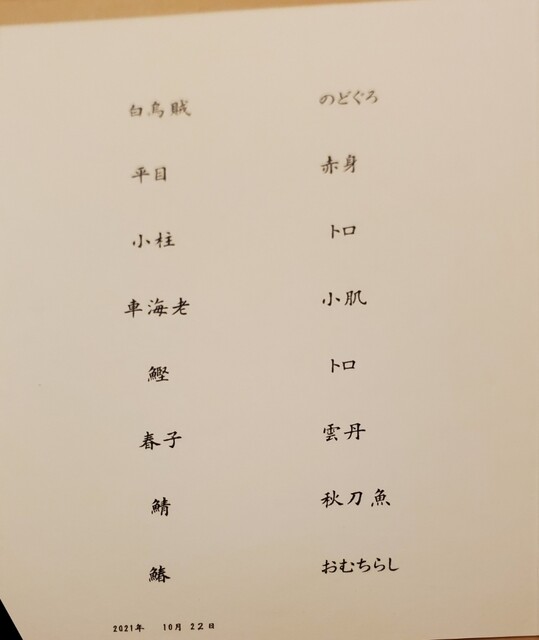 白烏賊
平目
小柱
車海老
鰹
春子
鯖
鰆
のどぐろ
赤身
トロ
小肌
トロ
雲丹
秋刀魚
おむちらし
2021年 10月 22日